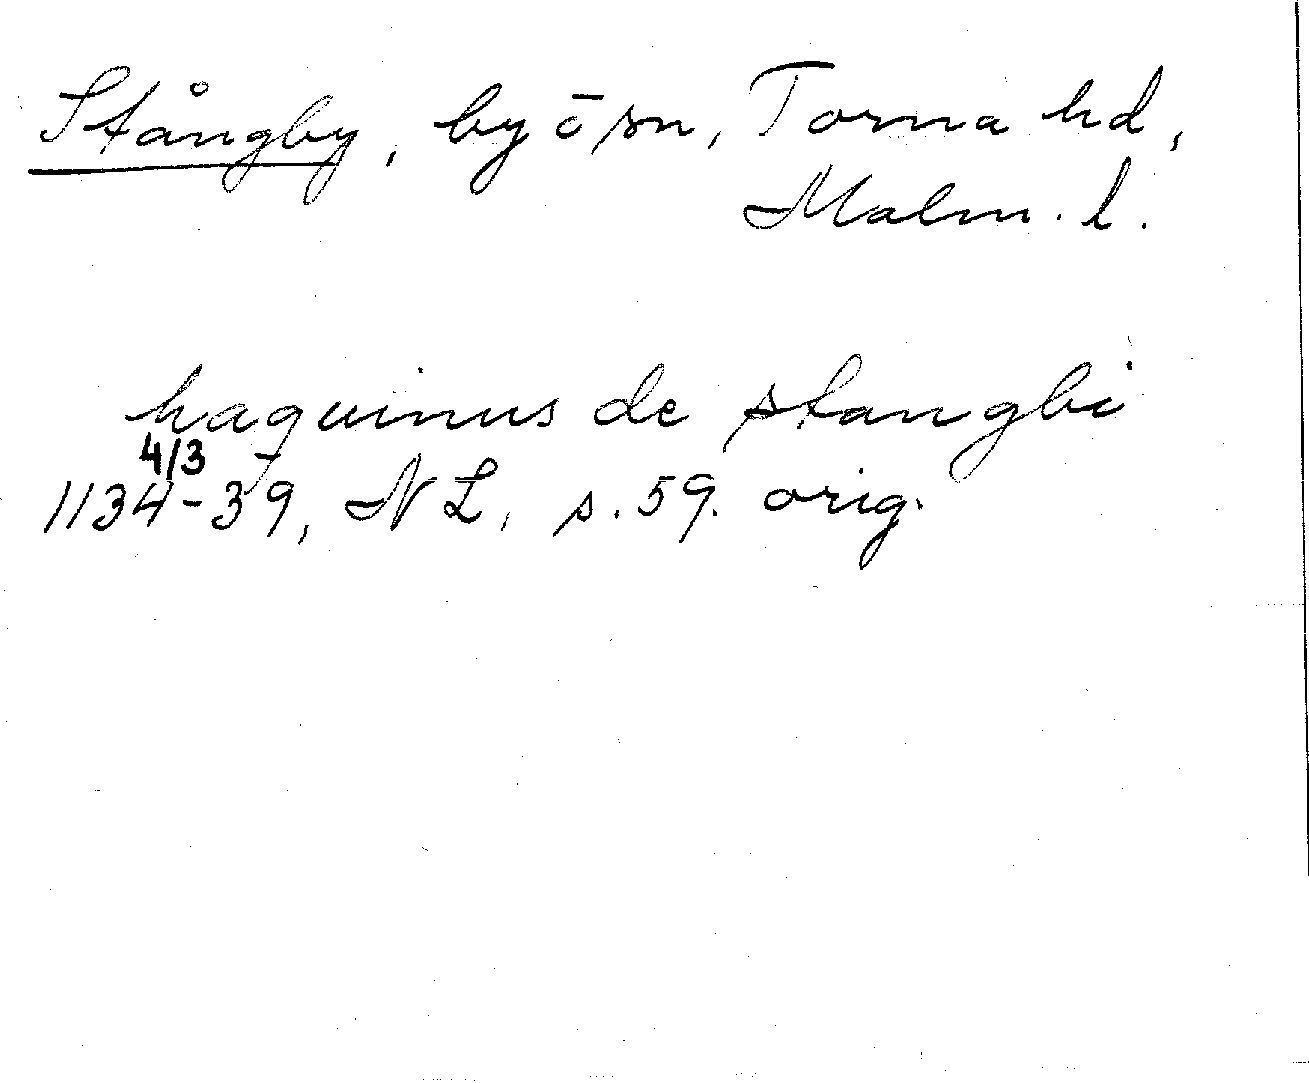 Stångby, by ō sn, Torna hd,
Malm. l.
haquinus de stangbi
4/3
1134-39, NL, s. 59. orig.